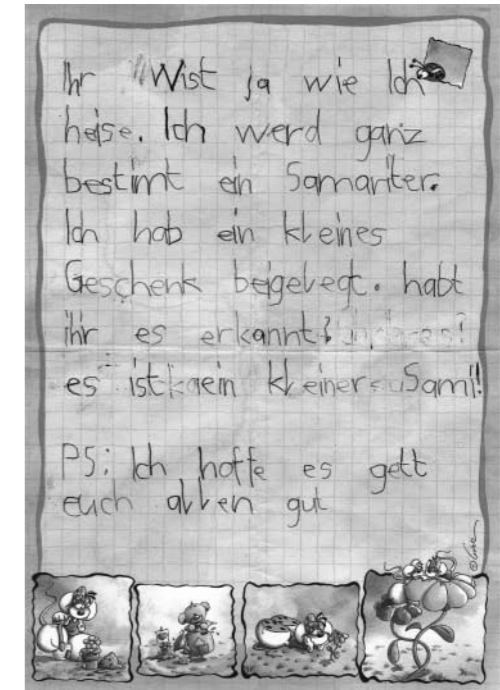 Ihr Wist ja wie Ich
heise. Ich werd ganz
bestimt ein Samariter.
Ich hab ein kleines
Geschenk beigelegt. habt
ihr es erkannt?
es ist ein kleiner Sami!
PS: Ich hoffe es gett
euch allen gut